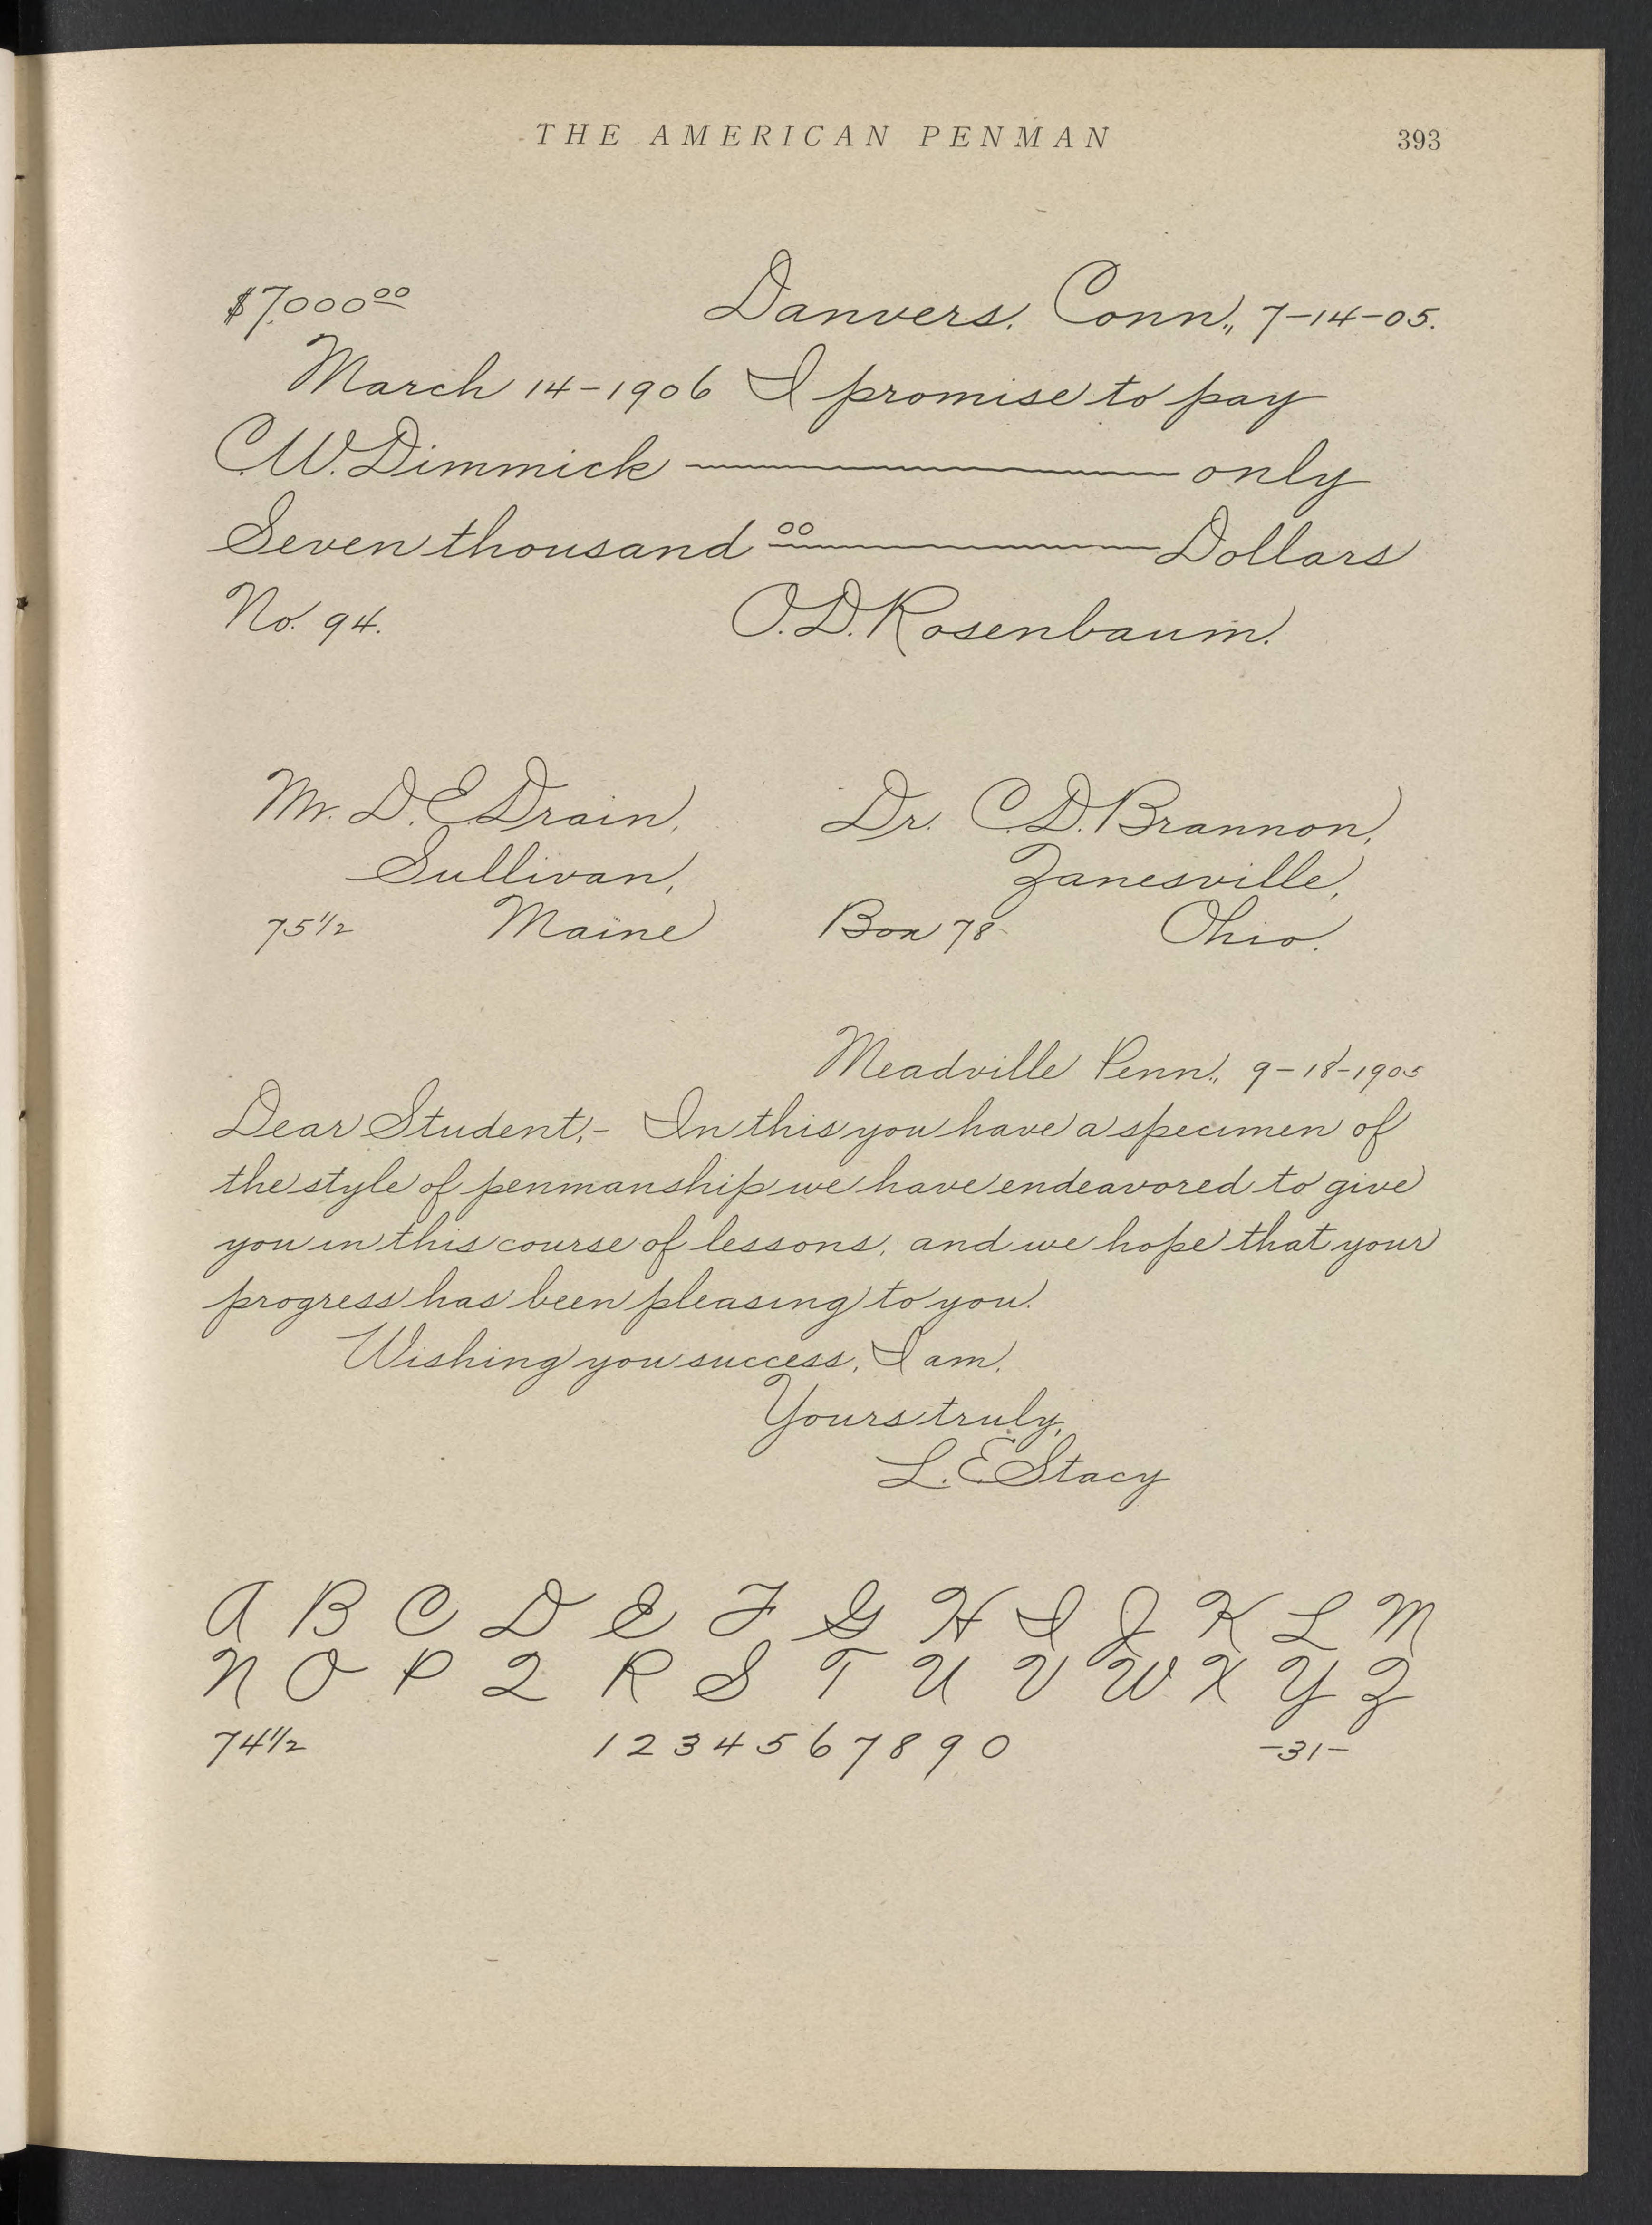 THE AMERICAN PENMAN 393
$7,000 00 Danvers, Conn., 7-14-05.
March 14-1906 I promise to pay
C.W. Dimmick only
Seven thousand 00 Dollars
No. 94. O.D. Rosenbaum.
Mr. D.E. Drain,
Sullivan,
75 1/2 Maine
Dr. C.D. Brannon,
Zanesville,
Box 78 Ohio.
Meadville Penn., 9-18-1905
Dear Student,- In this you have a specimen of
the style of penmanship we have endeavored to give
you in this course of lessons, and we hope that your
progress has been pleasing to you.
Wishing you success, I am,
Yours truly,
L. E Stacy
A B C D E F G H I J K L M
N O P Q R S T U V W X Y Z
74 1/2 1 2 3 4 5 6 7 8 9 0 -31-